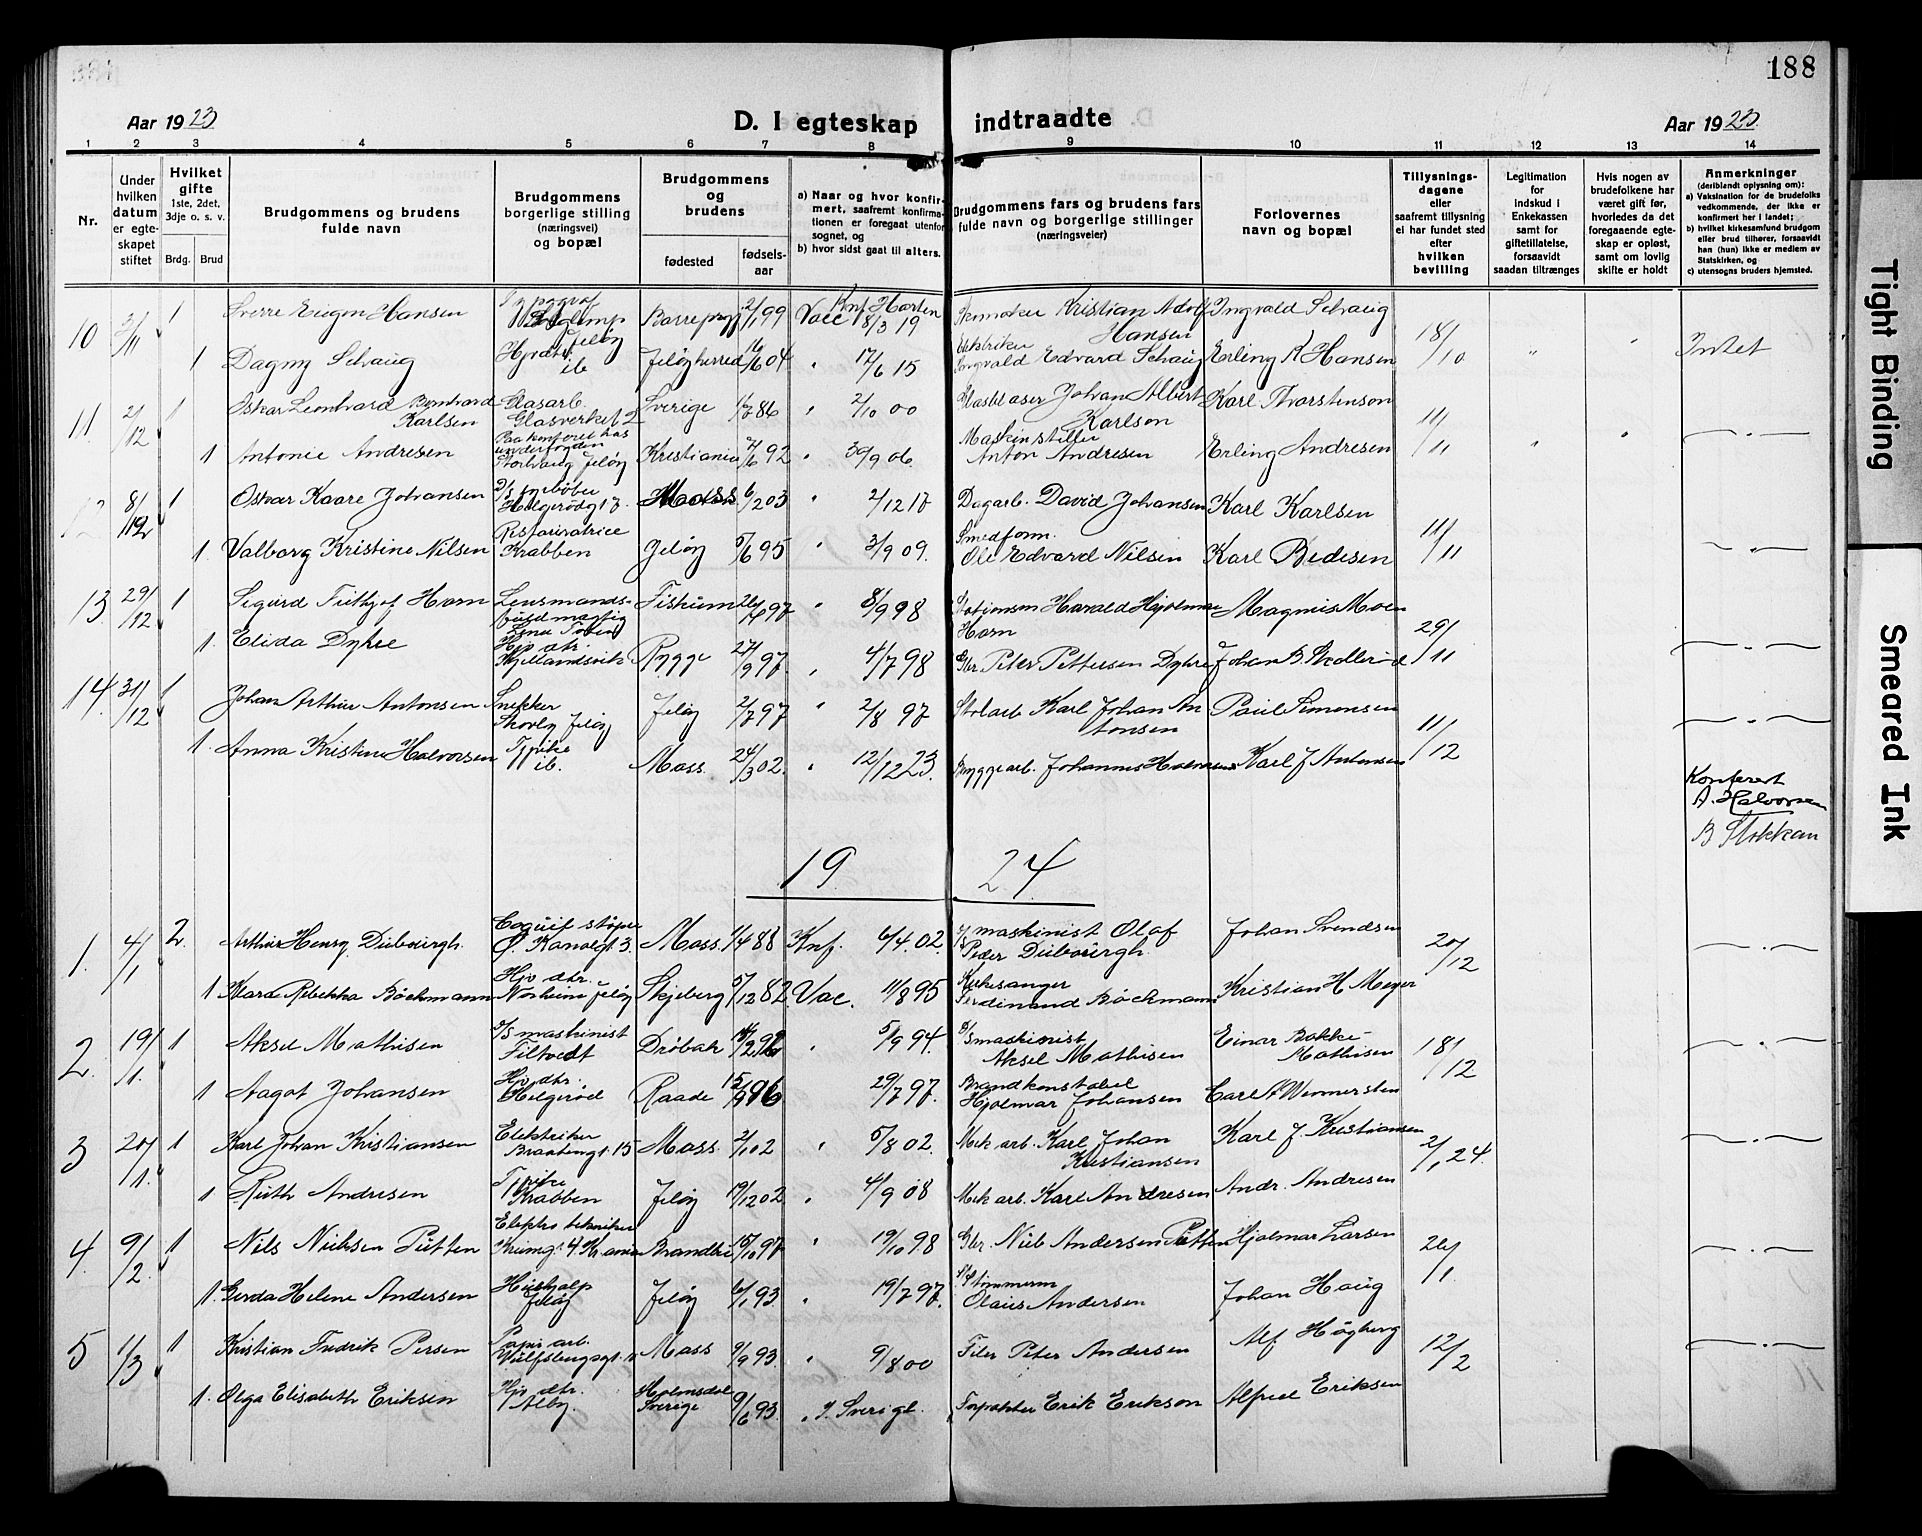 188
Aar 1923
D. I egteskap indtraadte
Aar 1923
1 2 3 4 5 6 7 8 9 10 11 12 13 14
Nr.
Under hvilken datum er egteskapet stiftet
Hvilket gifte 1ste, 2det, 3dje o. s. v.
Brdg. Brud
Brudgommens og brudens fulde navn
Brudgommens borgerlige stilling (næringsvei) og bopæl
Brudgommens og brudens
fødested
fødselsaar
a) Naar og hvor konfirmert, saafremt konfirmationen er foregaat utenfor sognet, og
b) hvor sidst gaat til alters.
Brudgommens fars og brudens fars fulde navn og borgerlige stillinger (næringsveier)
Forlovernes navn og bopæl
Tillysningsdagene eller saafremt tillysning ei har fundet sted efter hvilken bevilling
Legitimation for indskud i Enkekassen samt for giftetillatelse, forsaavidt saadan tiltrænges
Hvis nogen av brudefolkene har været gift før, hvorledes da det foregaaende egteskap er opløst, samt om lovlig skifte er holdt
Anmerkninger (deriblandt oplysning om):
a) Vaksination for de brudefolks vedkommende, der ikke er konfirmert her i landet;
b) hvilket kirkesamfund brudgom eller brud tilhører, forsaavidt han (hun) ikke er medlem av Statskirken, og
c) utensogns bruders hjemsted.
10 3/11 1 Sverre Hansen Typograf Jeløy Borre 2/1 99 Vacc Knf Horten 18/3 19 Skomaker Kristian Adolf Hansen Ingvald Schaug 18/10 " " Intet
1 Dagny Schaug Hjv dtr. ib Jeløy herred 16/6 04 " 17/6 15 Elektriker Ingvald Edvard Schaug Erling K Hansen
11. 2/12 1 Oskar Leonhard Berntvard Karlsen Glasarb. Glasverket 2 Sverige 1/7 86 " 2/10 00 Glasblaser Johan Albert Karlson Karl Thorstenson 11/11 " " — " —
1 Antonie Andresen Storhaug Jeløy Kristiania 7/6 92 " 30/9 06 Maskinstiller Anton Andresen Erling Andresen
12 8/12 1 Oskar Kaare Johansen Helgerødg 17 Moss 6/2 03 " 2/12 17 Dagarb. David Johansen Karl Karlsen 11/11 — " —
1. Valborg Kristine Nilsen Restauratrice Krabben Jeløy 5/6 95 " 3/9 09. Smedform. Ole Edvard Nilsen Karl Pedesen
13. 29/12 1 Sigurd Horn Lensmandsfuldmægtig Fiskum 97 " 8/9 98 Harald Hjalmar Horn Magnus Moen 29/11 — " —
1. Elida Dyhre Hjv dtr. Kjellandsvik Rygge 27/9 97 " 4/7 98 Gbr. Peter Pettersen Dyhre Johan B.
14. 31/12 1 Johan Arthur Antonsen Snekker Skovly Jeløy Jeløy 2/7 97 " 2/8 97 Stolarb Karl Johan Antonsen Paul Simonsen 11/12 — " —
1. Anna Kristine Halvorsen Tjpike ib. Moss. 24/3 02. " 12/12 23. Bryggearb. Johannes Halvorsen Karl J Antonsen
Konferert
A. Halvorsen
B Stokkan
19 24
1. 4/1 2. Arthur Henry Dubourgh. støper Ø. Kanalgt 3. Moss. 1/4 88 Knf. 6/4. 02. maskinist Olaf Peder Dubourgh. Johan Svendsen 20/12 — " —
1 Mara Rebekka Bøckmann Hjv dtr. Norheim Jeløy Skjeberg 5/12 82 Vac. 11/8 95 Kirkesanger Ferdinand Bøckmann Kristian H Meyer
2. 19/1. 1 Aksel Mathisen D/S maskinist Filtvedt Drøbak 96 " 5/9 94. D/S maskinist Aksel Mathisen Einar Bakke Mathisen 18/12 — " —
1 Aagot Johansen Hjv dtr. Helgerød Raade 96 " 29/7 97. Brandkonstabel Hjalmar Johansen Carl A Wennersten
3 20/1. 1 Karl Johan Kristiansen Elektriker Braatengt. 15 Moss. 2/1 02 " 5/8 02. Mek arb. Karl Johan Kristiansen Karl J. Kristiansen 2/1 24. — " —
1 Ruth Andresen Tjpike Krabben Jeløy 19/12 02 " 4/9 08 Mek arb. Karl Andresen Andr. Andresen
4. 9/2. 1 Nils Nielsen Putten Elektrotekniker Krania Brandbu 15/10 97 " 19/10 98 Gbr. Nils Andersen Putten Hjalmar Larsen 26/1 — " —
1. Gerda Helene Andersen Hushjælp Jeløy Jeløy 6/1 93. " 19/7 97. Tømmerm Olaus Andersen Johan Haug
5 1/3 1 Kristian Fredrik Persen Papir arb. Moss 9/9 93. " 9/8 00 Filer Peter Andersen Alf Høgberg 12/2 — " —
1. Olga Elisabeth Eriksen Hjv dtr. Alby. Holmsdal Sverige 9/6 93. " I Sverige. Forpakter Erik Erikson Alfred Eriksen
Tight Binding
Smeared Ink